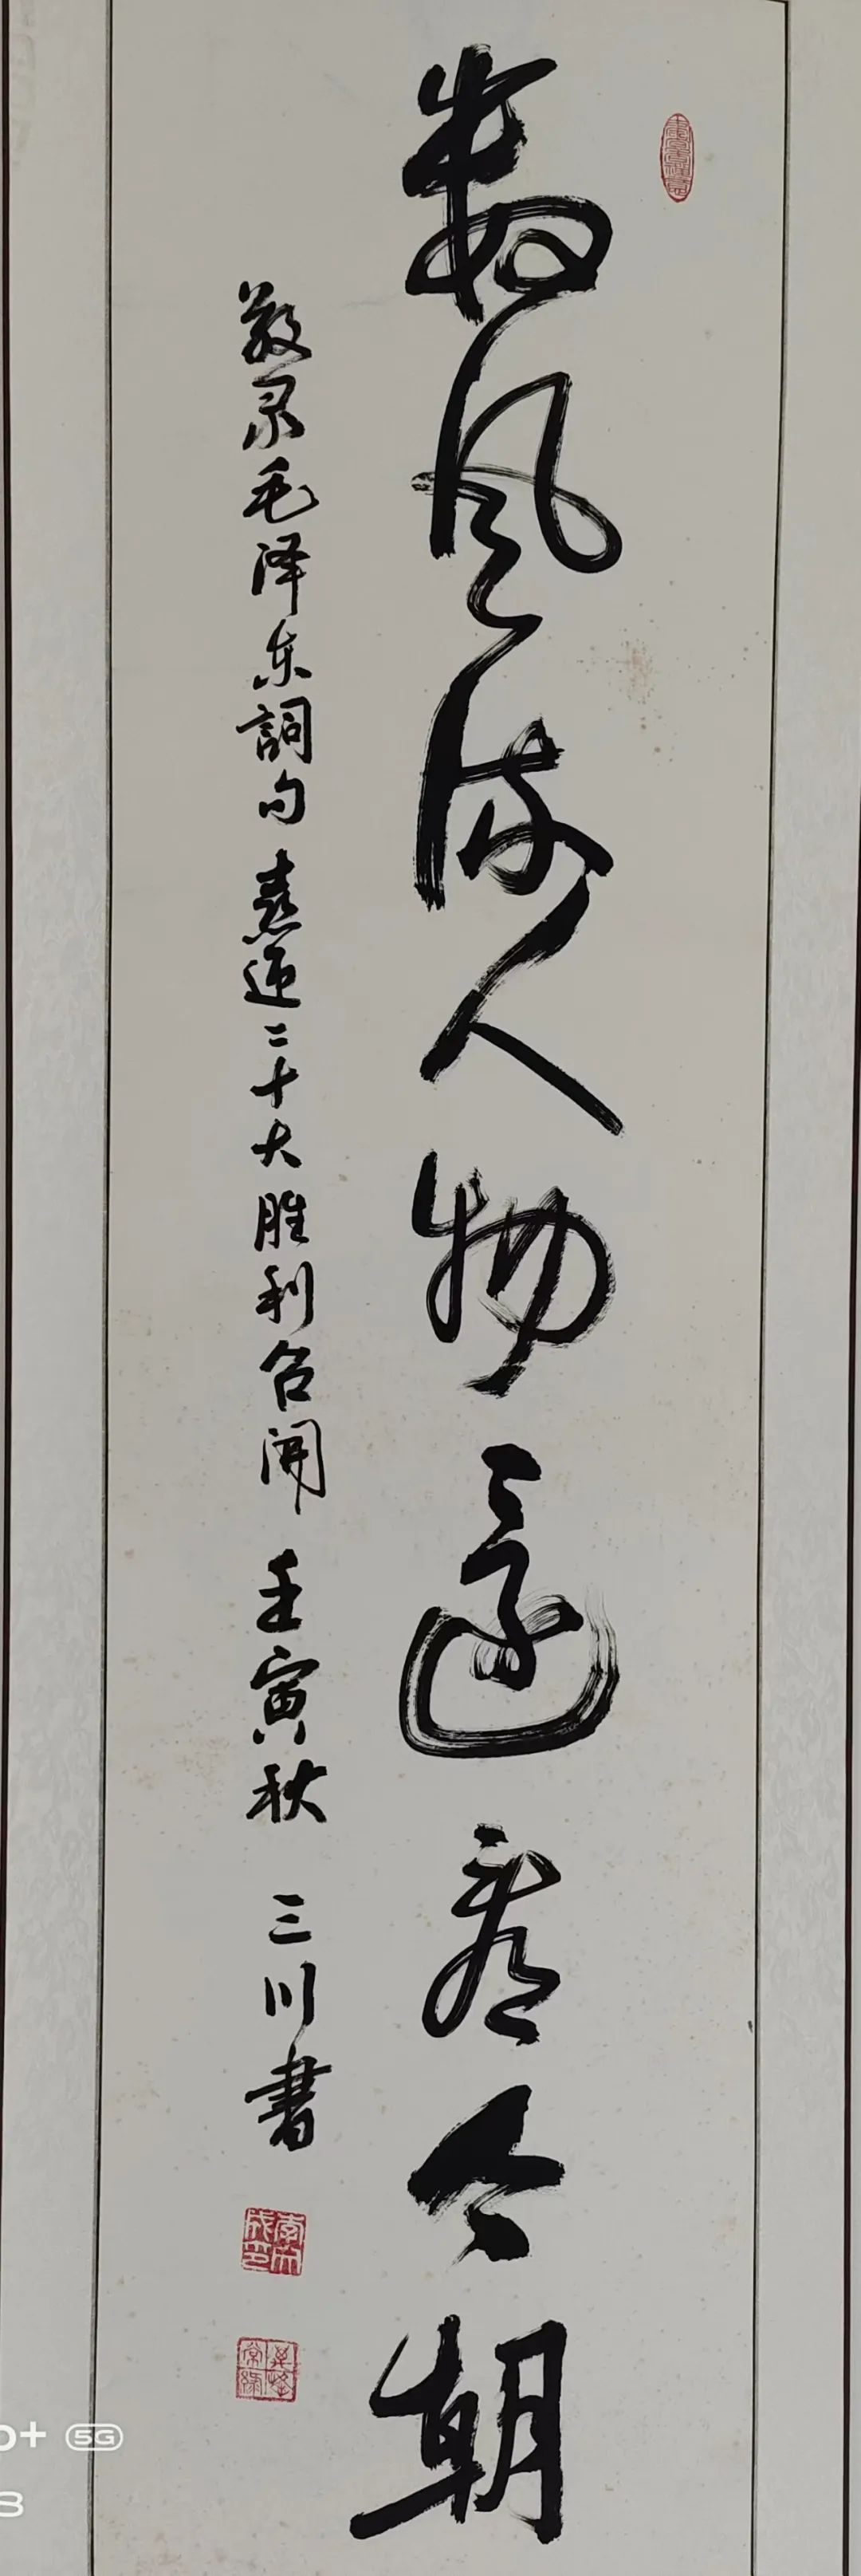 数风流人物還看今朝
敬录毛泽东詞句 喜迎二十大胜利召開 壬寅秋 三川書
o+ 5G